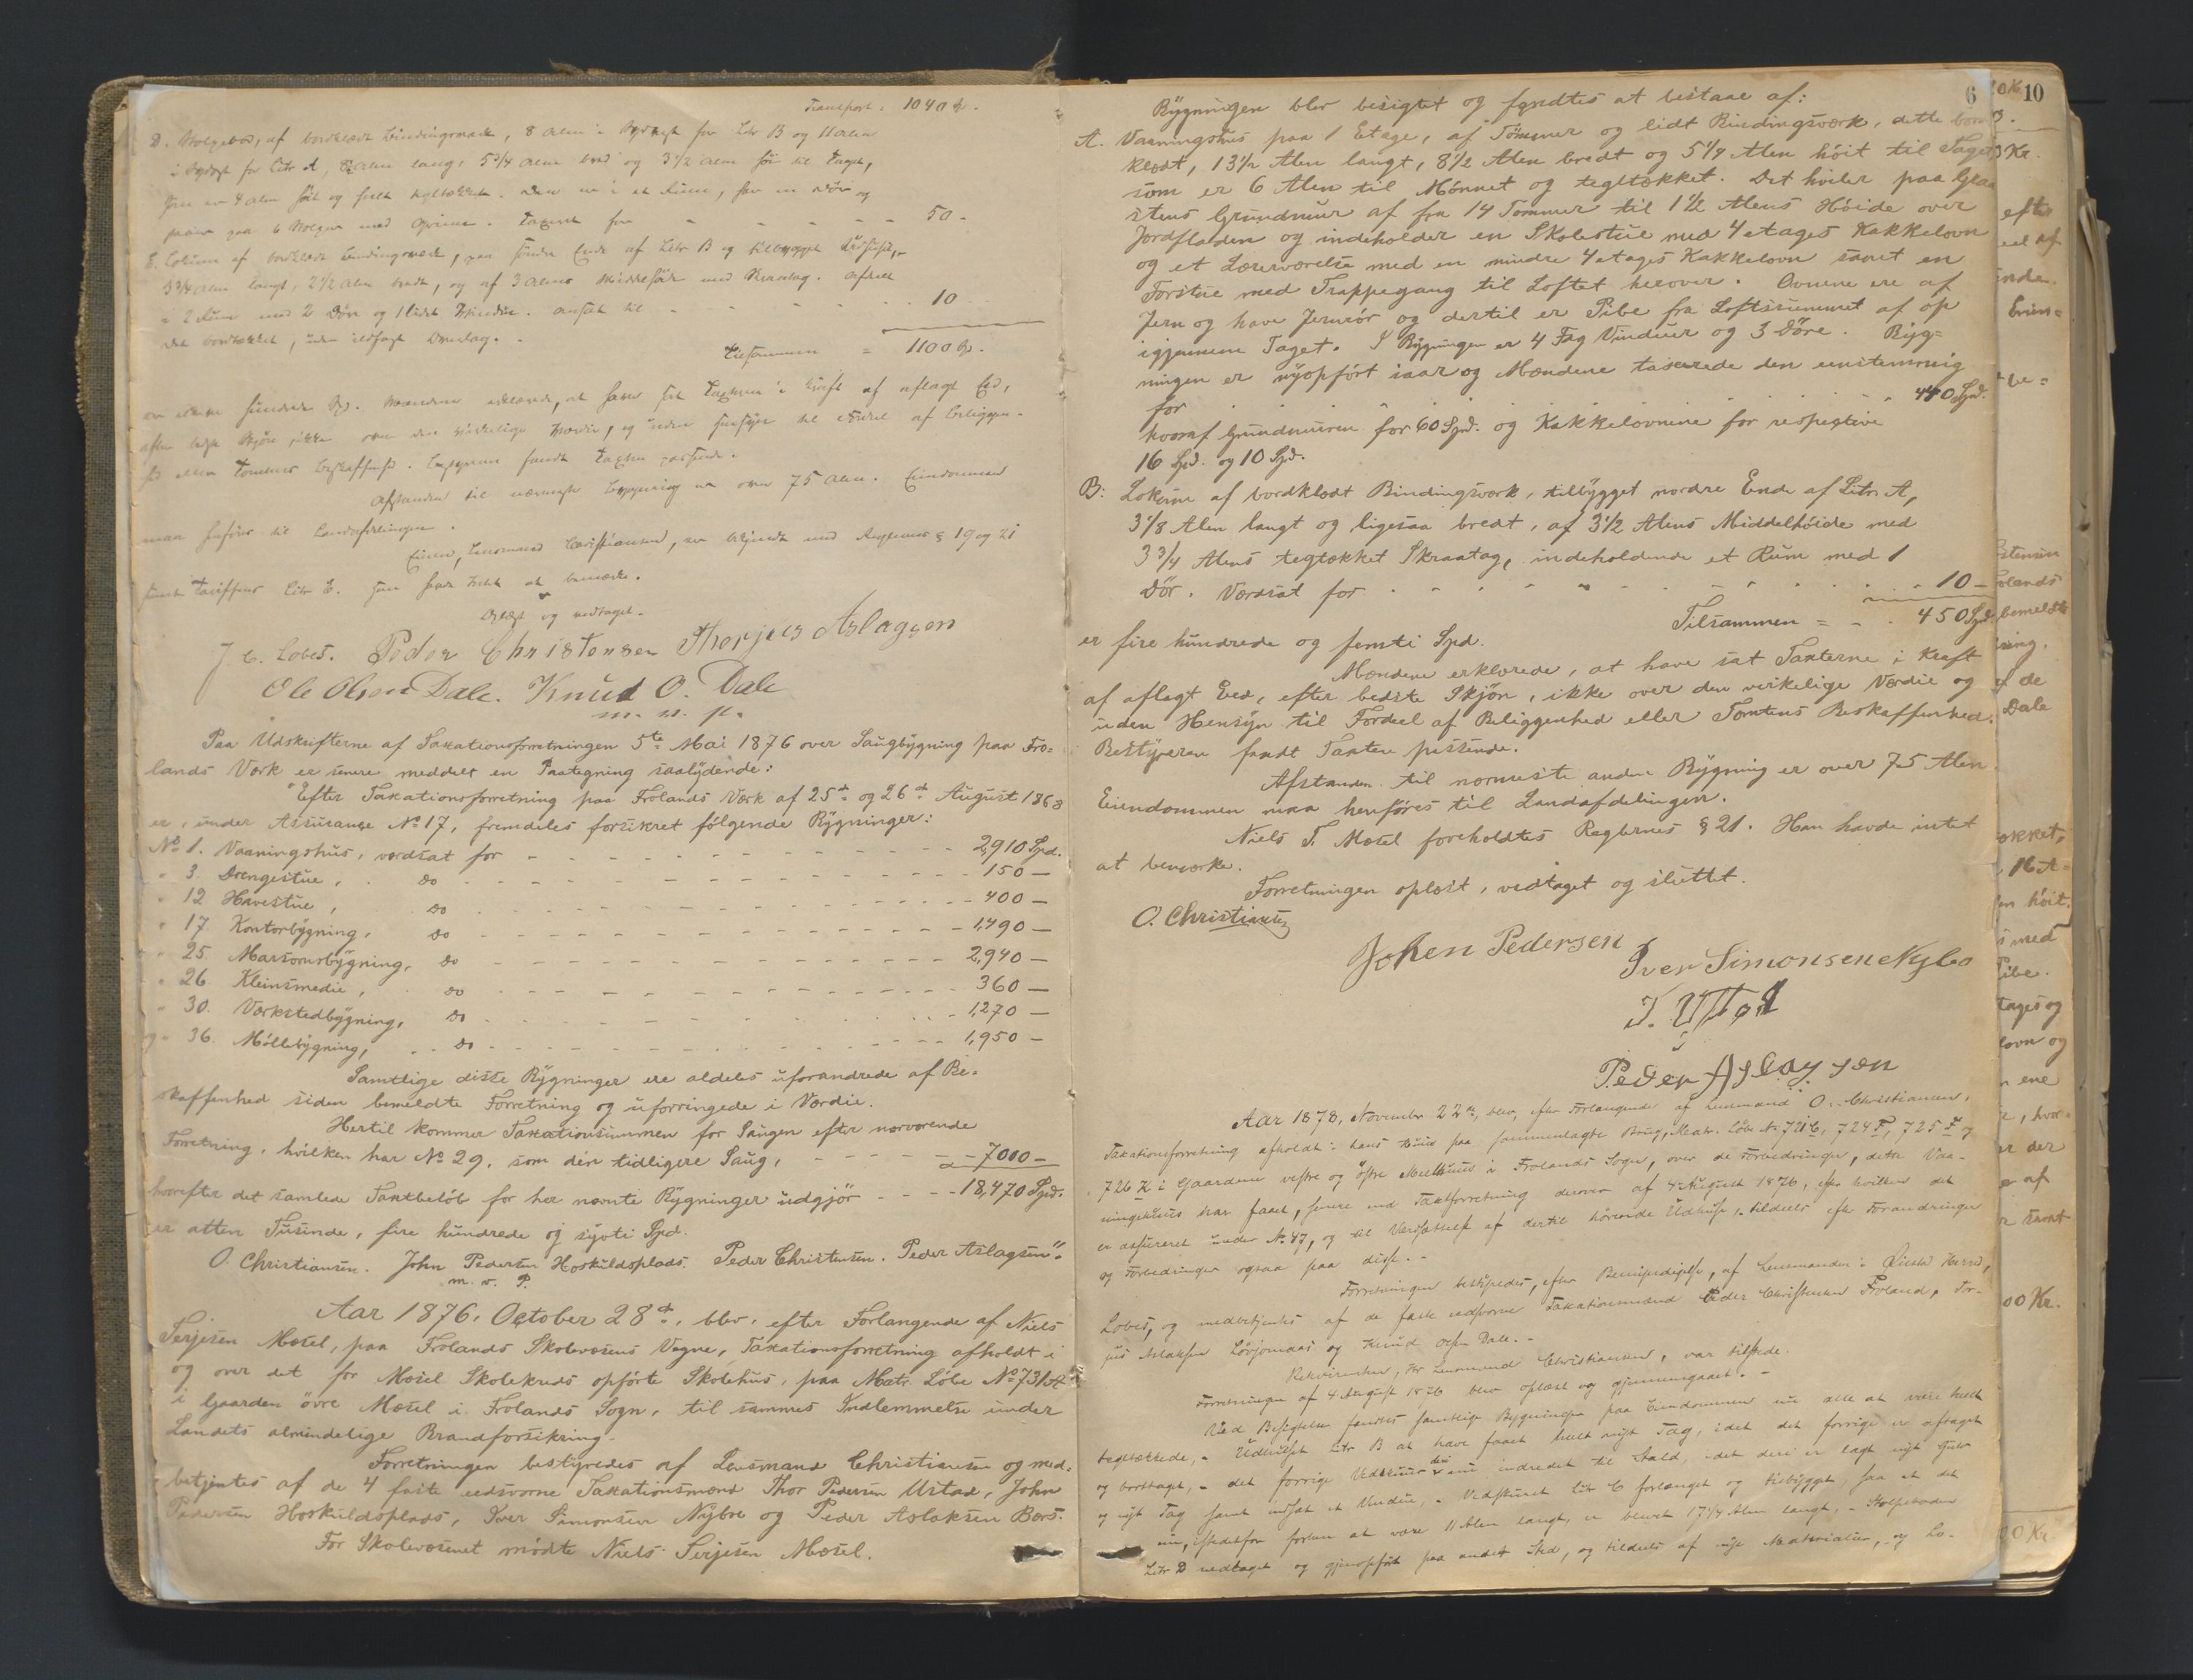 Transport. 1040 Spd.
D. Stolpebod, af bordklædt Bindingsværk, 8 Alen i for Litr B og 11 Alen
i for Litr A, Alen lang, 5 3/4 Alen bred og 3 1/2 Alen høi til Taget,
som er 4 Alen høit og heelt tegltækket. Den er i et Rum, har en Dør og
staar paa 6 Stolper med . Taxeret for - - - - - 50 -
E. Lokum af bordklædt Bindingsværk, paa søndre Ende af Litr B og tilbygget ,
3 3/4 Alen langt, 2 1/2 Alen bredt, og af 3 Alens Middelhøide med Skraatag. Afdelt
i 2 Rum med 2 Døre og 1 lidet Vindue. Ansat til - - - - 10
Det bordtækket, uden Ildsfarligt .
Tilsammen = 1100 Spd.
er ellve hundrede Spd. Mændene erklærede, at have sat Taxterne i Kraft af aflagt Eed,
efter bedste Skjøn, ikke over den virkelige Værdie, og uden Hensyn til Fordeel af Beliggen-
hed eller Tomtens Beskaffenhed. Bestyreren fandt Taxten passende.
Afstanden til nærmeste Bygning er over 75 Alen. Eiendommen
maa henføres til Landafdelingen.
Eieren, Lensmand Christiansen, er bekjendt med Reglernes § 19 og 21
samt Tariffens Litr E. Han havde Intet at bemærke.
Oplæst og vedtaget.
J. C. Lobes. Peder Christensen Thorjus Aslagsen
Ole Olsen Dale. Knud O. Dale
m. v. p.
Paa Udskrifterne af Taxationsforretningen 5te Mai 1876 over Saugbygning paa Fro=
lands Værk er senere meddelt en Paategning saalydende:
"Efter Taxationsforretning paa Frolands Værk af 25de og 26de August 1868
er, under Assurance No 17, fremdeles forsikret følgende Bygninger:
No 1. Vaaningshus, værdsat for - - - - 2,910 Spd.
" 3. Drengestue, do - - - - 150 —
" 12 Havestue, do - - - - 400 —
" 17. Kontorbygning, do - - - - 1,490 —
" 25. Masovnsbygning, do - - - - 2,940 —
" 26. Kleinsmedie, do - - - - 360 —
" 30. Værkstedbygning, do - - - - 1,270 —
og " 36. Møllebygning, do - - - - 1,950 —
Samtlige disse Bygninger ere aldeles uforandrede af Be-
skaffenhed siden bemeldte Forretning og uforringede i Værdie.
Hertil kommer Taxationssummen for Saugen efter nærværende
Forretning, hvilken har No 29, som den tidligere Saug, - - - - 7000 —
hvorefter det samlede Taxtbeløb for her nævnte Bygninger udgjør - - - - 18,470 Spd.
er atten Tusinde, fire hundrede og syvti Spd.
O. Christiansen. John Pedersen Hoskuldsplads. Peder Christensen. Peder Aslagsen".
m. v. P.
Aar 1876, October 28de, blev, efter Forlangende af Niels
Terjesen Mæsel, paa Frolands Skolevæsens Vegne, Taxationsforretning afholdt i
og over det for Mæsel Skolekreds opførte Skolehus, paa Matr. Løbe No 731A
i Gaarden øvre Mæsel i Frolands Sogn, til sammes Indlemmelse under
Landets almindelige Brandforsikring.
Forretningen bestyredes af Lensmand Christiansen og med-
betjentes af de 4 faste eedsvorne Taxationsmænd Thor Pedersen Ustad, John
Pedersen Hoskuldsplads, Iver Simonsen Nybo og Peder Aslaksen Bors.
For Skolevæsenet mødte Niels Terjesen Mæsel.
6
Bygningen blev besigtet og fandtes at bestaae af:
A. Vaaningshus paa 1 Etage, af Tømmer og lidt Bindingsværk, dette bord
klædt, 13 1/2 Alen langt, 8 1/2 Alen bredt og 5 1/4 Alen høit til Taget,
som er 6 Alen til Mønnet og tegltækket. Det hviler paa Graa
stens Grundmuur af fra 14 Tommer til 1 1/2 Alens Høide over
Jordfladen og indeholder en Skolestue med 4 etages Kakkelovn
og et Læreværelse med en mindre 4 etages Kakkelovn samt en
Forstue med Trappegang til Loftet herover. Ovnene ere af
Jern og have Jernrør og dertil er Pibe fra Loftsrummet af op
igjennem Taget. I Bygningen er 4 Fag Vinduer og 3 Døre. Byg=
ningen er nyopført iaar og Mændene taxerede den eenstemmig
for - - - - 440 Spd.
hvoraf Grundmuren for 60 Spd. og Kakkelovnene for respective
16 Spd. og 10 Spd.
B: Lokum af bordklædt Bindingsværk, tilbygget nordre Ende af Litr. A,
3 1/8 Alen langt og ligesaa bredt, af 3 1/2 Alens Middelhøide med
3 3/4 Alens tegltækket Skraatag, indeholdende et Rum med 1
Dør. Værdsat for - - - - 10 —
Tilsammen = - . 450 Spd.
er fire hundrede og femti Spd.
Mændene erklærede, at have sat Taxterne i Kraft
af aflagt Eed, efter bedste Skjøn, ikke over den virkelige Værdie og
uden Hensyn til Fordeel af Beliggenhed eller Tomtens Beskaffenhed.
Bestyreren fandt Taxten passende.
Afstanden til nærmeste anden Bygning er over 75 Alen.
Eiendommen maa henføres til Landafdelingen.
Niels T. Mæsel foreholdtes Reglernes § 21. Han havde intet
at bemærke.
Forretningen oplæst, vedtaget og sluttet.
O. Christiansen
Johen Pedersen Iver Simonsen Nybo
T. Ustad
Peder Aslagsen
Aar 1878, November 22de, blev, efter Forlangende af Lensmand O. Christiansen,
Taxationsforretning afholdt i hans Huus paa sammenlagte Brug, Matr. Løbe No 721C, 724F, 725F og
726K i Gaardene vestre og østre Mølthuus i Frolands Sogn, over de Forbedringer, dette Vaa-
ningshuus har faaet, senere end Taxtforretning derover af 4 August 1876, efter hvilken det
er assureret under No 47, og til Værdsættelse af dertil hørende Udhuse, tildeels efter Forandringer
og Forbedringer ogsaa paa disse. -
Forretningen bestyredes, efter Bemyndigelse, af Lensmanden i Øiestad Herred,
Lobes, og medbetjentes af de faste eedsvorne Taxationsmænd Peder Christensen Froland, Tor-
jus Aslaksen Løvjomaas og Knud Olsen Dale. -
Rekvirenten, Hr Lensmand Christiansen, var tilstede.
Forretningen af 4 August 1876 blev oplæst og gjennemgaaet. -
Ved Besigtelse fandtes samtlige Bygninger paa Eiendommen nu alle at være heelt
tegltækkede, - Udhuset Litr B at have faaet heelt nyt Tag, idet det forrige er aftaget
og borttaget, - det forrige Vedskuur deri er nu indredet til Stald, idet deri er lagt nyt Gulv
og nyt Tag samt indsat et Vindue, - Vedskuret Litr C forlænget og tilbygget, saa at det
nu, istedetfor forhen at være 11 Alen langt, er blevet 17 1/4 Alen langt, - Stolpeboden
Litr D nedtaget og gjenopført paa andet Sted, og tildeels af nye Materialier, og Lo-
10
3 Kr.
efter
eel af
inde
bemeldte
ning,
af de
Dale
16 A-
høit.
med
Pibe.
tages og
lovn og
hvor-
er der
af
samt
00 Kr.
00 Kr